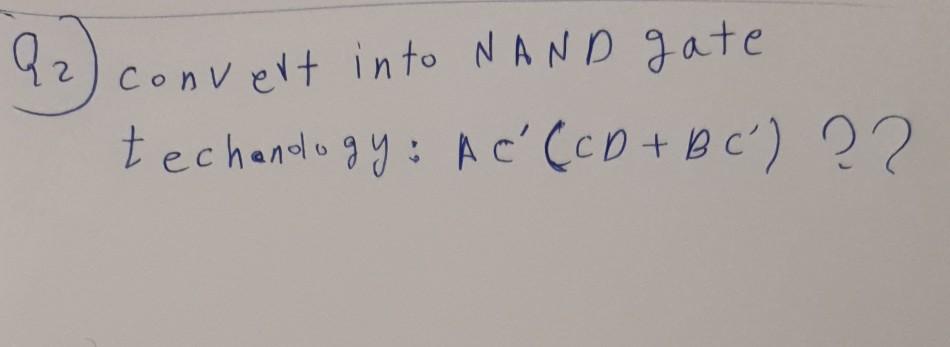 Q2) convert into NAND gate
techanology: AC'(CD + BC') ??